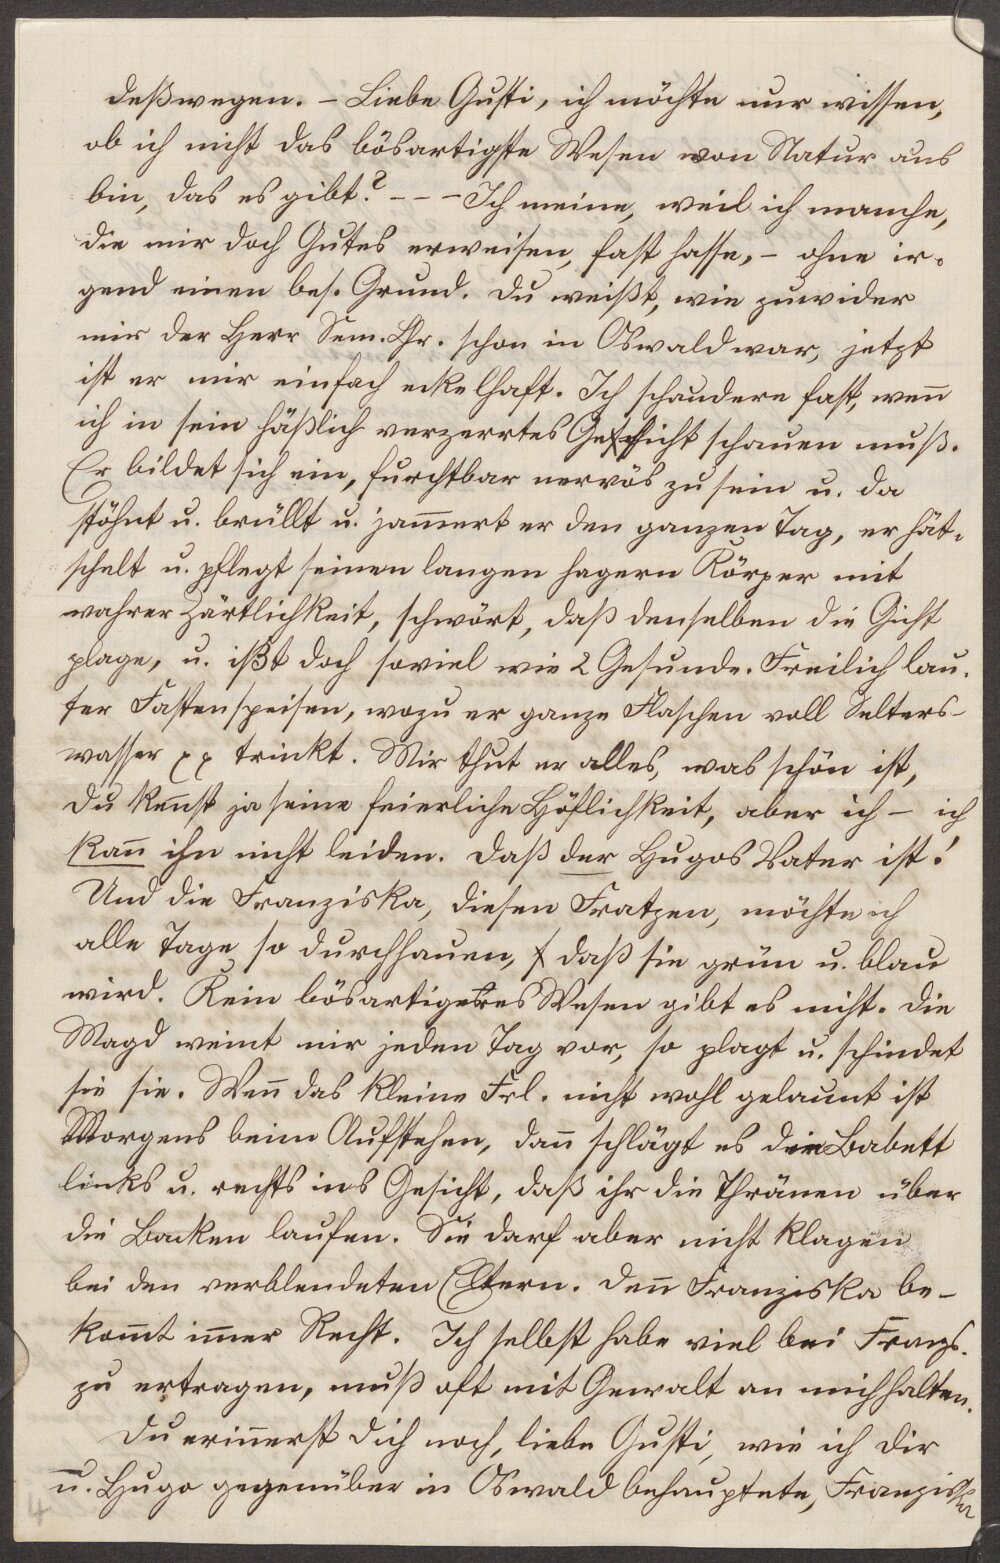 deßwegen. – Liebe Gusti, ich möchte nur wissen,
ob ich nicht das bösartigste Wesen von Natur aus
bin, das es gibt? – – – Ich meine, weil ich manche,
die mir doch Gutes erweisen, fast hasse, – ohne ir-
gend einen bes. Grund. Du weißt, wie zuwider
mir der Herr Sem. Lhr. schon in Oswald war, jetzt
ist er mir einfach eckelhaft. Ich schaudere fast, wen̄
ich in sein häßlich verzerrtes Gesicht schauen muß.
Er bildet sich ein, furchtbar nervös zu sein u. da
stöhnt u. brüllt u. jam̄ert er den ganzen Tag, er hät-
schelt u. pflegt seinen langen hagern Körper mit
wahrer Zärtlichkeit, schwört, daß denselben die Gicht
plage, u. ißt doch soviel wie 2 Gesunde. Freilich lau-
ter Fastenspeisen, wozu er ganze Flaschen voll Selters-
wasser xx trinkt. Mir thut er alles, was schön ist,
Du ken̄st ja seine feierliche Höflichkeit, aber ich – ich
kan̄ ihn nicht leiden. Daß der Hugos Vater ist!
Und die Franziska, diesen Fratzen, möchte ich
alle Tage so durchhauen, daß sie grün u. blau
wird. Kein bösartigeres Wesen gibt es nicht. Die
Magd weint mir jeden Tag vor, so plagt u. schindet
sie sie. Wen̄ das kleine Frl. nicht wohl gelaunt ist
Morgens beim Aufstehen, dan̄ schlägt es die Babett
links u. rechts ins Gesicht, daß ihr die Thränen über
die Backen laufen. Sie darf aber nicht klagen
bei den verblendeten Eltern. Den̄ Franziska be-
kom̄t im̄er Recht. Ich selbst habe viel bei Franz.
zu ertragen, muß oft mit Gewalt an mich halten.
Du erin̄erst Dich noch, liebe Gusti, wie ich Dir
u. Hugo gegenüber in Oswald behauptete, Franziska
4